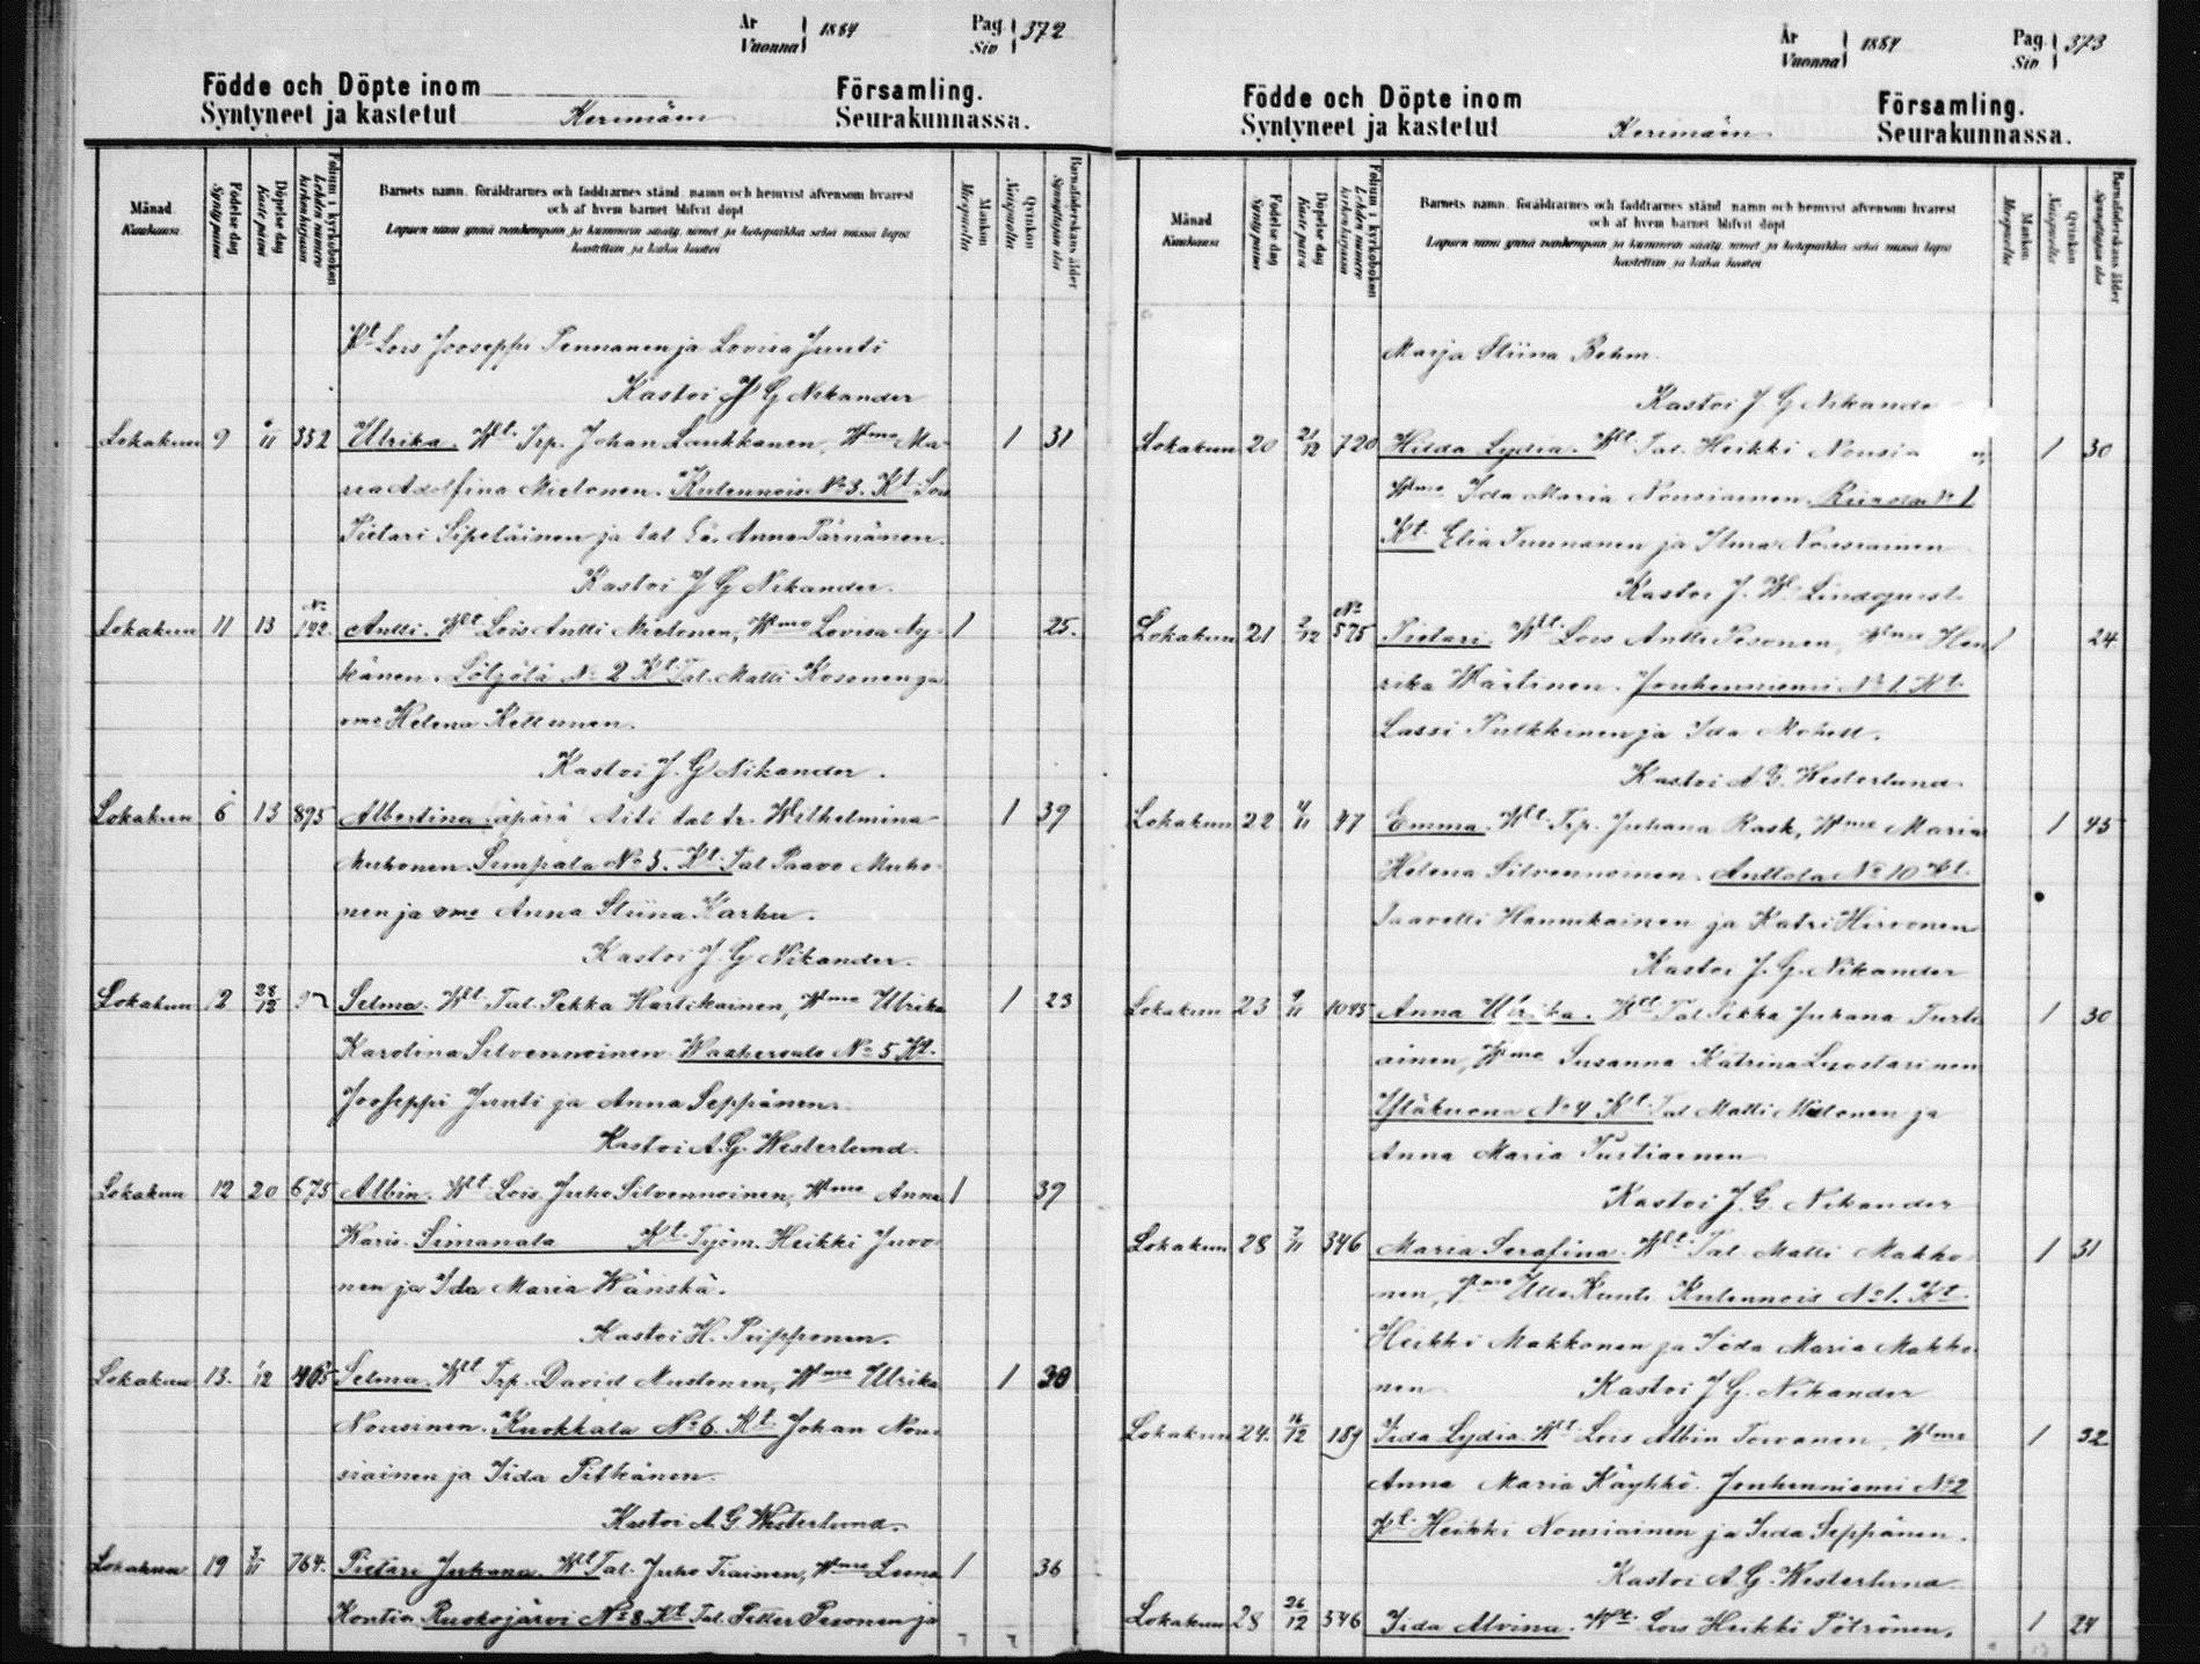 År
Vuonna 1884
Pag.
Siv 372
Födde och Döpte inom Församling.
Syntyneet ja kastetut Kerimäen Seurakunnassa.
Månad
Kuukausi
Födelse dag
Syntypäivä
Döpelse dag
Kaste päivä
Folium i kyrkoboken
Lehden numero kirkonkirjassa
Barnets namn, föräldrarnes och faddrarnes stånd, namn och hemvist äfvensom hvarest
och af hvem barnet blifvit döpt
Lapsen nimi ynnä vanhempain ja kummein sääty, nimet ja kotopaikka sekä missä lapsi
kastettiin ja kuka kastoi
Mankön
Miespuolta
Qvinkön
Naispuolta
Barnaföderskans ålder
Synnyttäjän ikä
Kt Lois Jooseppi Pennanen ja Lovisa Junti
Kastoi J G Nikander
Lokakuu 9 6/11 352 Ulrika. Wlt Trp. Johan Laukkanen, Wmo Ma- 1 31
ria Adolfina Mielonen. Kulennois No 3. Kt Lois
Pietari Sipeläinen ja tal. Anna Pärnänen.
Kastoi J G Nikander.
Lokakuu 11 13 No 192 Antti. Wlt Lois Antti Mielonen, Wmo Lovisa Ny- 1 25.
känen. Lötjölä No 2 Kt Tal. Matti Kosonen ja
vmo Helena Kettunen.
Kastoi J. G Nikander.
Lokakuu 6 13 895 Albertina. äpärä Äiti tal tr. Wilhelmina 1 39
Muhonen. Simpala No 5. Kt Tal Paavo Muho-
nen ja vmo Anna Stiina Karhu.
Kastoi J. G Nikander.
Lokakuu 12 28/12 Selma. Wlt Tal. Pekka Hartikainen, Wmo Ulrika 1 23
Karolina Silvennoinen. No 5 Kt.
Jooseppi Junti ja Anna Seppänen.
Kastoi A. G. Westerlund.
Lokakuu 12 20 675 Albin. Wlt Lois Juho Silvennoinen, Wmo Anna 1 39
Karis. Simanala Kt Työm. Heikki Juvo-
nen ja Ida Maria Wänskä.
Kastoi H. Piipponen.
Lokakuu 13. 1/12 465 Selma. Wlt Trp. David Mustonen, Wmo Ulrika 1 30
Nousinen. Kuokkala No 6. Kt Johan Nou-
siainen ja Iida Pitkänen.
Kastoi A. G Westerlund.
Lokakuu 19 7/11 764. Pietari Juhana. Wlt Tal. Juho Tiainen, Wmo Leena 1 36
Kontia. Ruokojärvi No 8 Kt Tal. Petter Pesonen ja
År
Vuonna 1884
Pag.
Siv 373
Födde och Döpte inom Församling.
Syntyneet ja kastetut Kerimäen Seurakunnassa.
Månad
Kuukausi
Födelse dag
Syntypäivä
Döpelse dag
Kaste päivä
Folium i kyrkoboken
Lehden numero kirkonkirjassa
Barnets namn, föräldrarnes och faddrarnes stånd, namn och hemvist äfvensom hvarest
och af hvem barnet blifvit döpt
Lapsen nimi ynnä vanhempain ja kummein sääty, nimet ja kotopaikka sekä missä lapsi
kastettiin ja kuka kastoi
Mankön
Miespuolta
Qvinkön
Naispuolta
Barnaföderskans ålder
Synnyttäjän ikä
Marja Stiina Behm.
Kastoi J G Nikande
Lokakuu 20 21/12 720 Hilda Lydia. Wlt Tal. Heikki Nousia n, 1 30
Wmo Ida Maria Nousiainen. No 1
Kt. Elia Tuunanen ja Ilma Nousiainen
Kastoi J. W. Lindquist.
Lokakuu 21 2/12 No 575 Pietari. Wlt Lois Antti Pesonen, Wmo Hen- 1 24
rika Wärtinen. Jouhenniemi No 1. Kt.
Lassi Pulkkinen ja Ida Mohell.
Kastoi A. G. Westerlund.
Lokakuu 22 4/11 47 Emma. Wlt Trp. Juhana Rask, Wmo Maria 1 45
Helena Silvennoinen. Anttola No 10 Kt.
Taavetti Hannikainen ja Katri Hirvonen
Kastoi J. G. Nikander
Lokakuu 23 9/11 1045 Anna Ulriika. Wlt Tal Pekka Juhana Turti- 1 30
ainen, Wmo Susanna Katrina Luostarinen
Yläkuona No 4 Kt Tal Matti Mielonen ja
Anna Maria Turtiainen
Kastoi J. G. Nikander
Lokakuu 28 7/11 346 Maria Serafina. Wlt Tal. Matti Makko- 1 31
nen, Wmo Ulla Kunti. Kulennois No 1. Kt.
Heikki Makkonen ja Iida Maria Makko-
nen Kastoi J G. Nikander
Lokakuu 24. 16/12 189 Iida Lydia. Wlt Lois Albin Torvanen, Wmo 1 32
Anna Maria Käyhkö. Jouhenniemi No 2
Kt Heikki Nousiainen ja Iida Seppänen.
Kastoi A. G. Westerlund.
Lokakuu 28 26/12 546 Iida Alviina. Wlt. Lois Heikki Pötrönen, 1 24